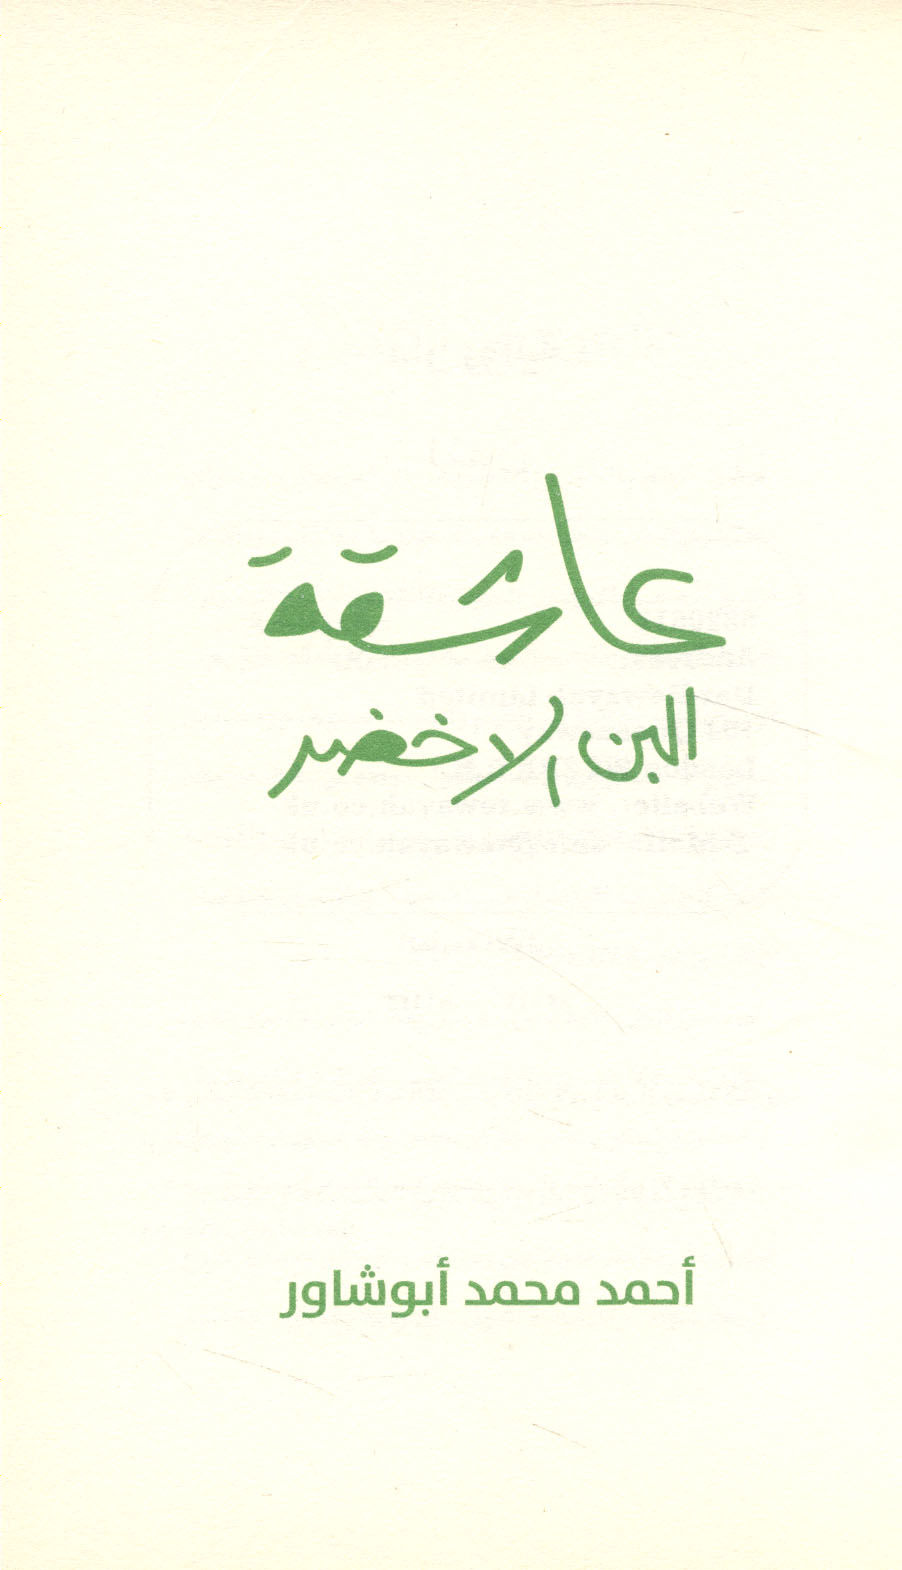 عاشقة
البن الاخضر
أحمد محمد أبوشاور